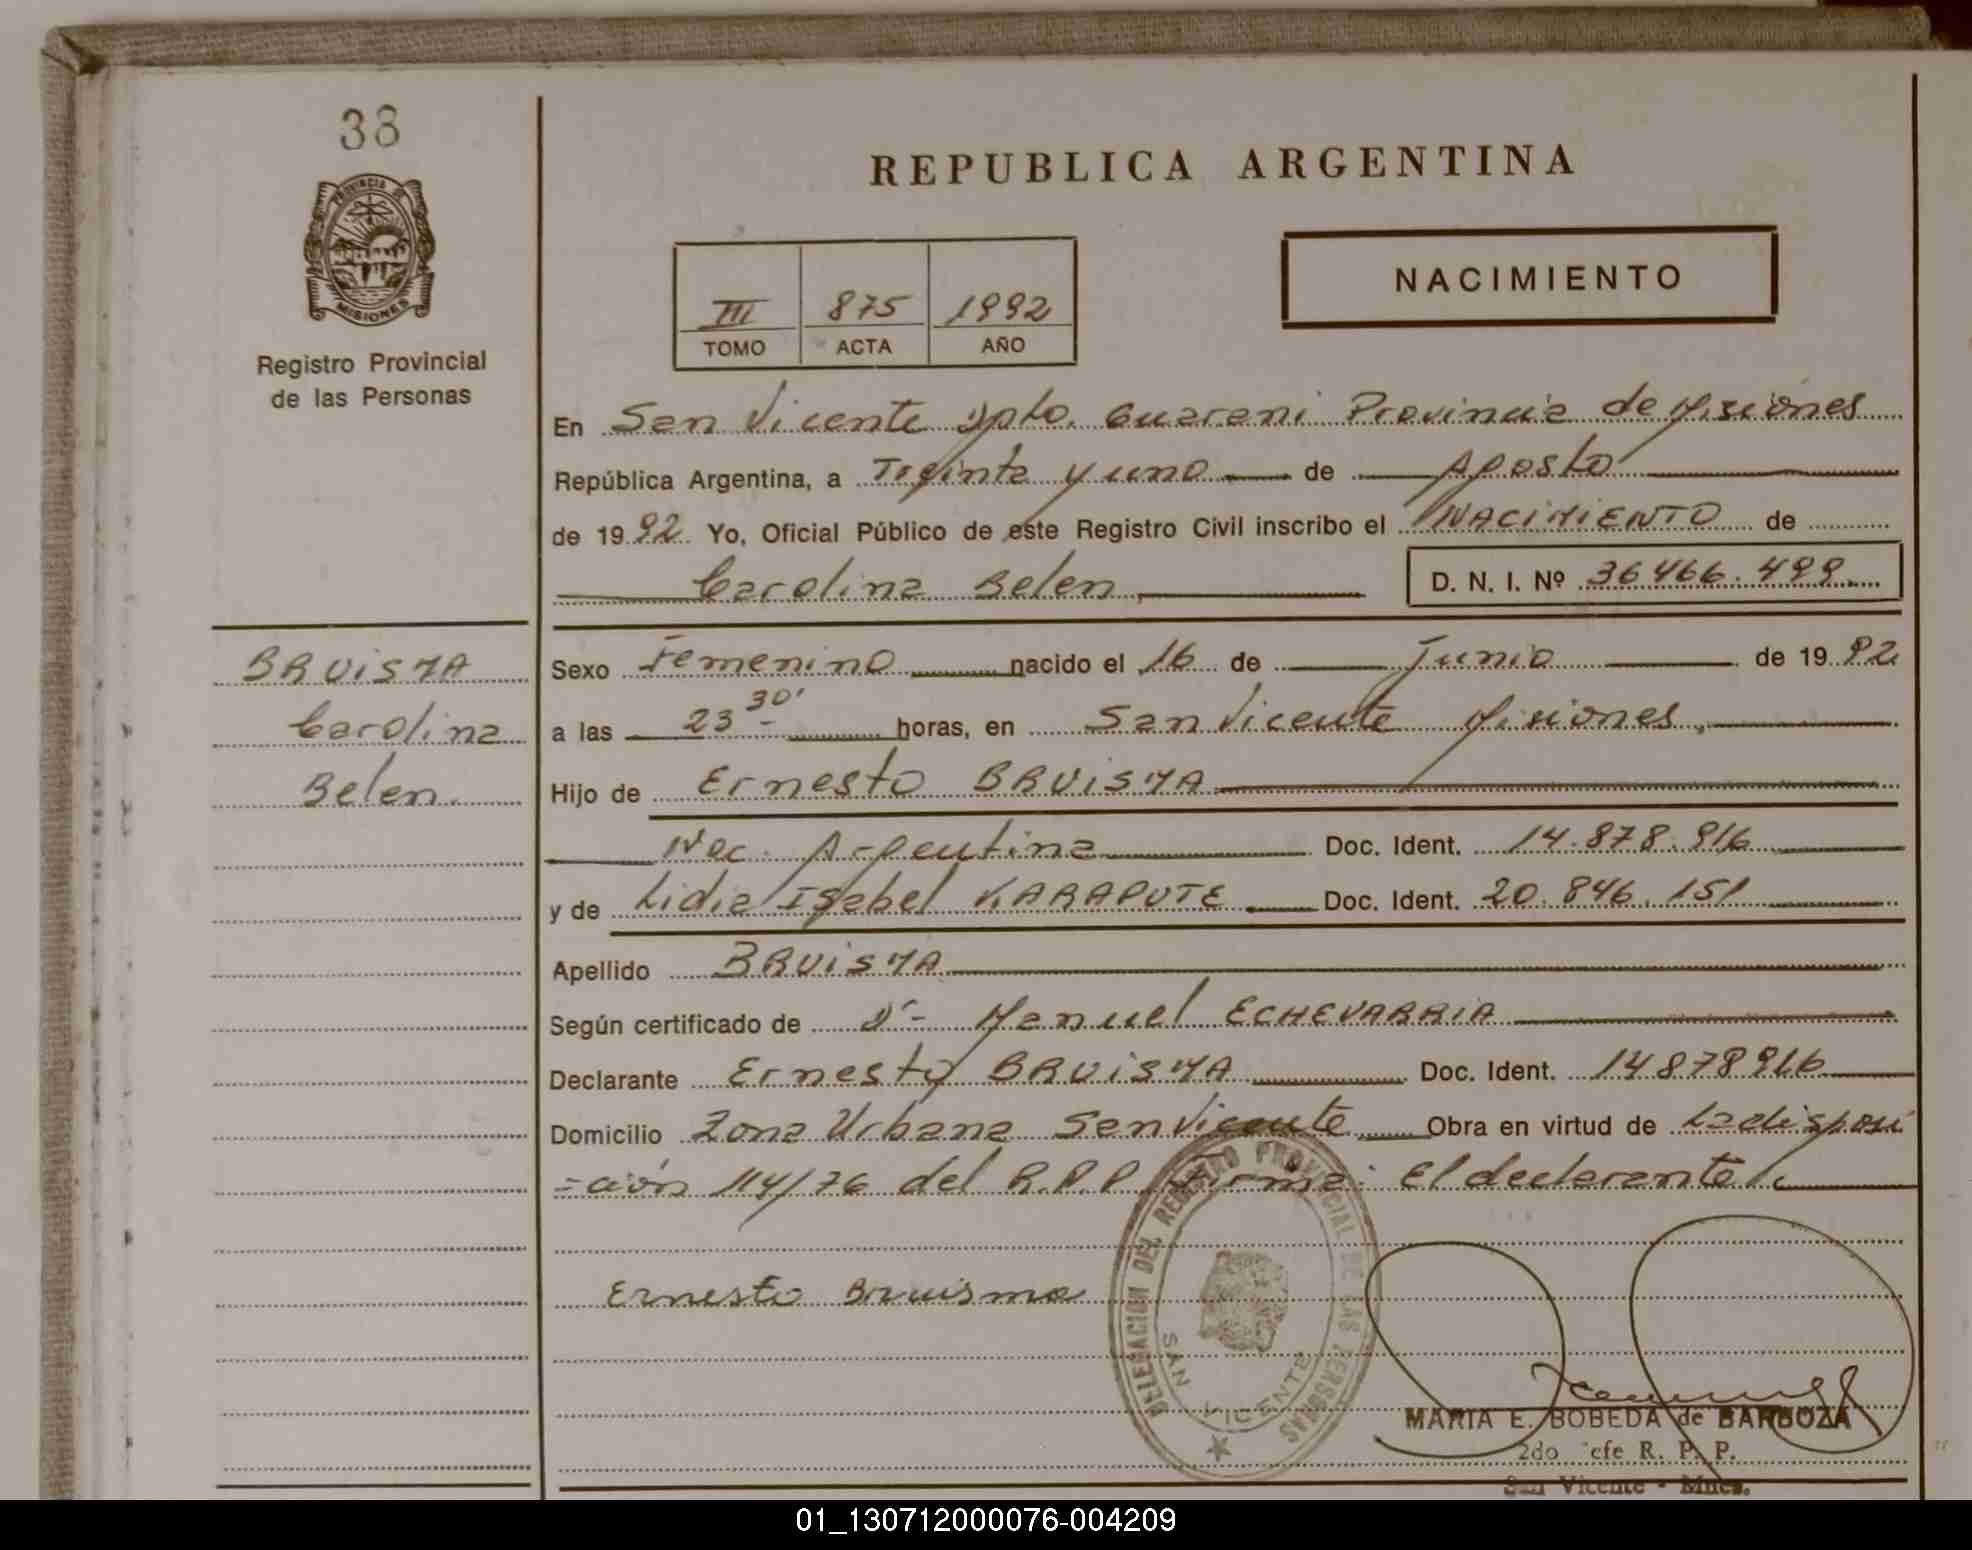 38
PROVINCIA DE
MISIONES
Registro Provincial
de las Personas
REPUBLICA ARGENTINA
NACIMIENTO
III 875 1992
TOMO ACTA AÑO
En San Vicente Dpto. Guarani Provincia de Misiones
República Argentina, a Treinta y uno de Agosto
de 1992 Yo, Oficial Público de este Registro Civil inscribo el NACIMIENTO de
Carolina Belen D. N. I. Nº 36466.499
BRUISMA
Carolina
Belen.
Sexo Femenino nacido el 16 de Junio de 1992
a las 23 30' horas, en San Vicente Misiones,
Hijo de Ernesto BRUISMA
Nac. Argentina Doc. Ident. 14.878.916
y de Lidia Isabel KARAPUTE Doc. Ident. 20.846.151
Apellido BRUISMA
Según certificado de Dr- Manuel ECHEVARRIA
Declarante Ernesto BRUISMA Doc. Ident. 14878916
Domicilio Zona Urbana San Vicente Obra en virtud de La disposi
=ción 114/76 del R.P.P. Firma: El declarante
Ernesto Bruisma
DELEGACION DEL REGISTRO PROVINCIAL DE LAS PERSONAS
SAN VICENTE
MARIA E. BOBEDA de BARBOZA
2do Jefe R. P. P.
San Vicente - Mnes.
01_130712000076-004209